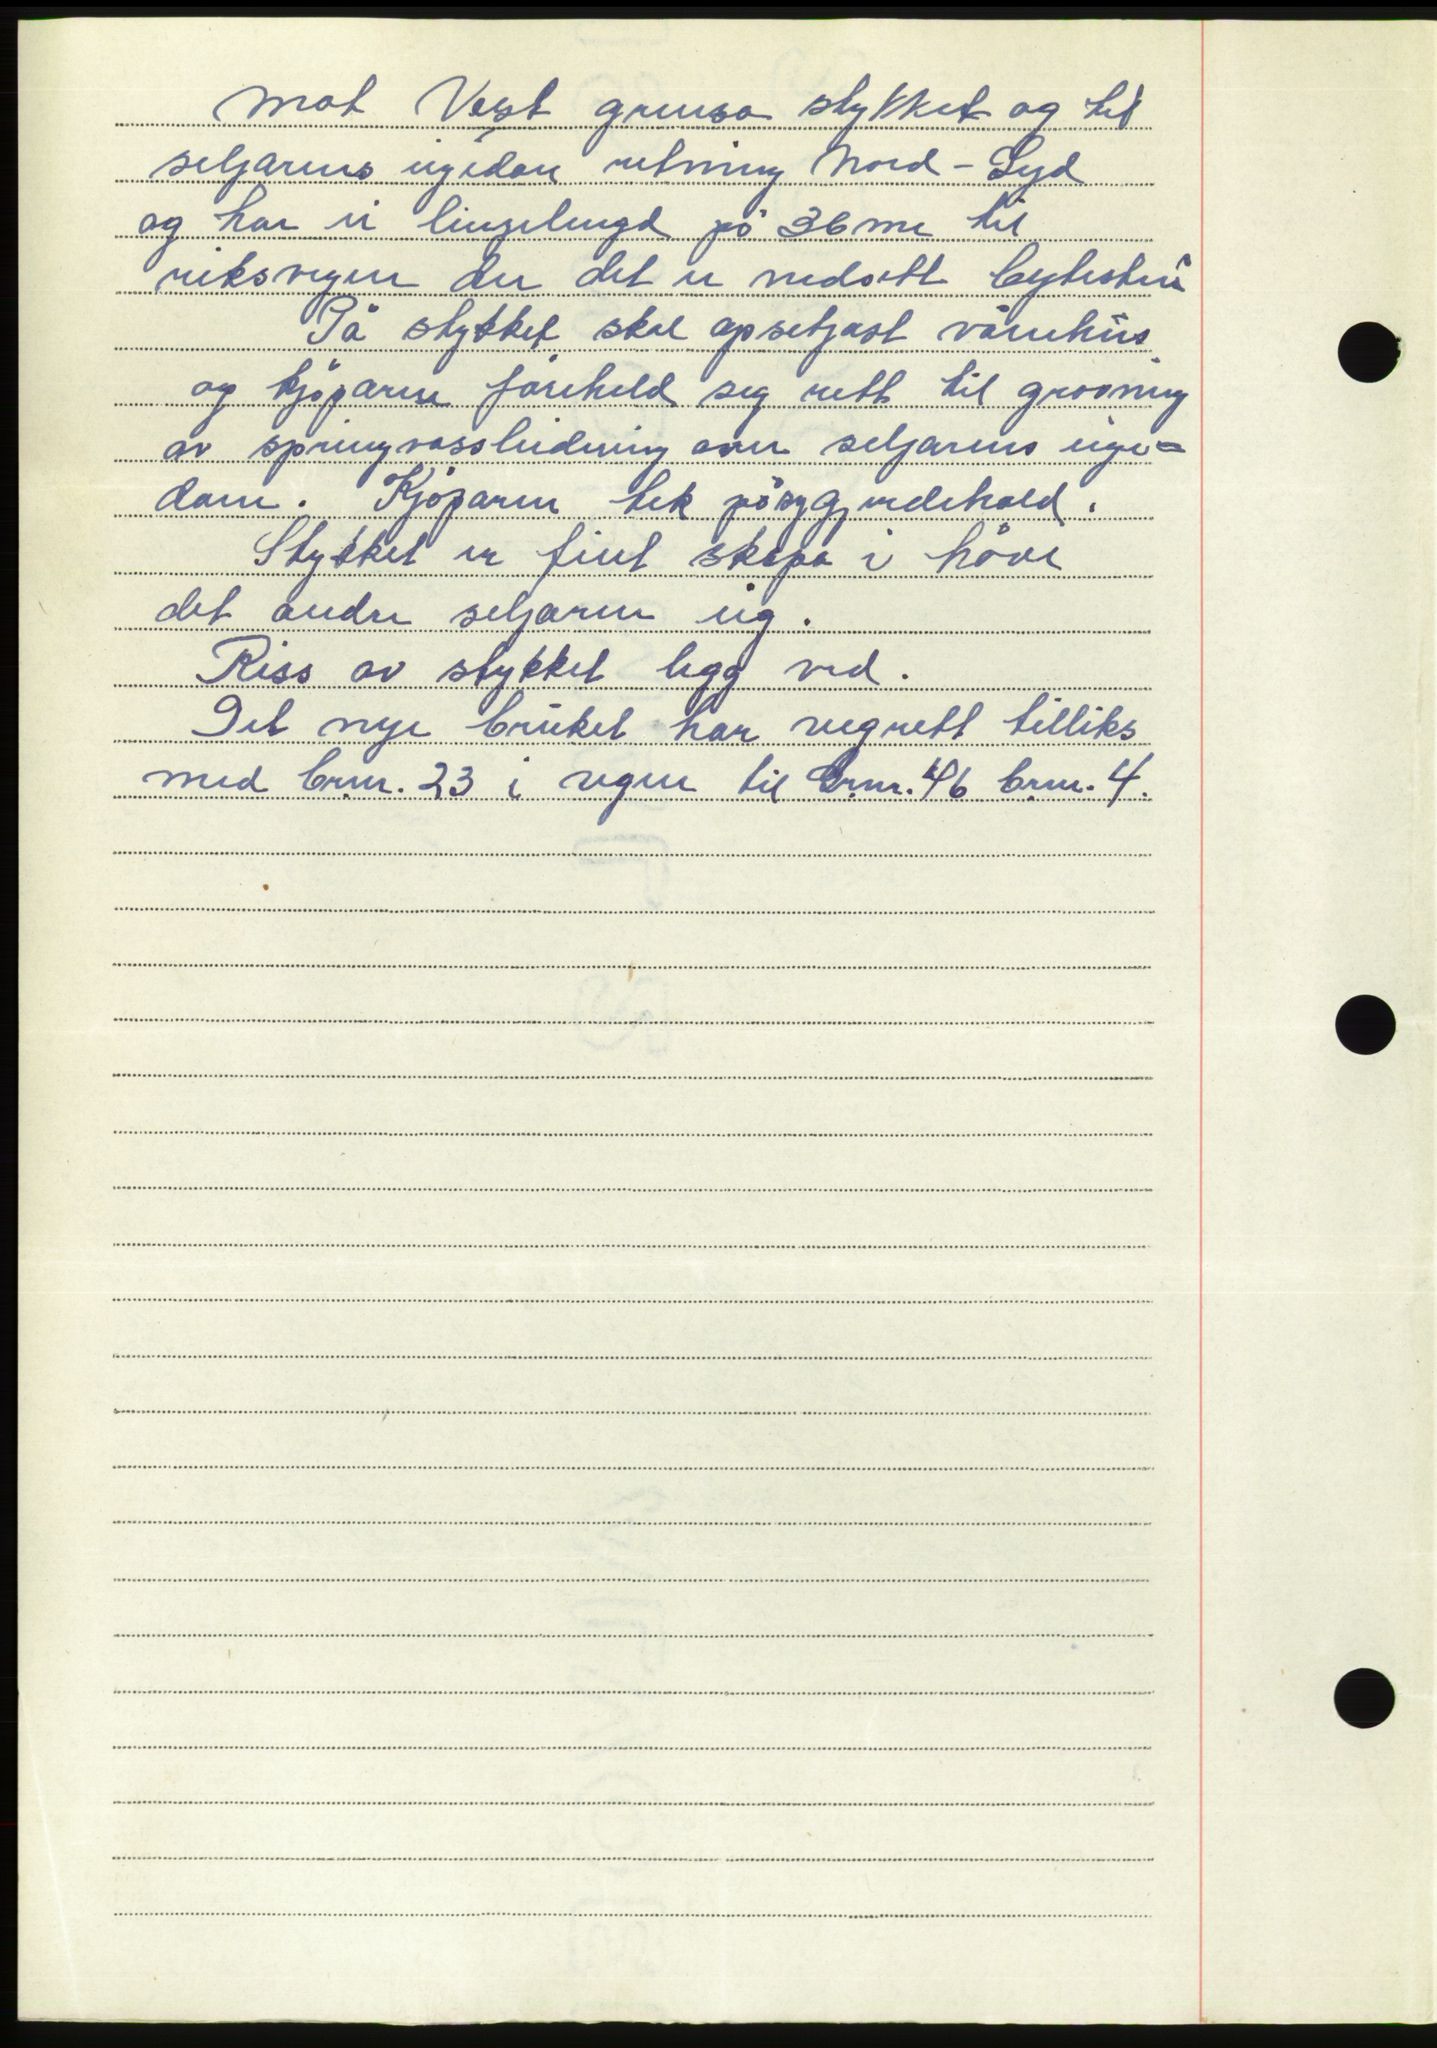 Mot Vest grensa stykket og til
seljarens eigedom retning Nord - Syd
og har ei lengd på 36 m til
riksvegen der det er nedsett bytestein
På stykket skal opsetjast vånehus
og kjøparen forheld seg rett til graving
av springvassleidning over seljarens eige=
dom. Kjøparen tek på seg gjerdehald.
Stykket er fint skapa i høve
det andre seljaren eig.
Riss av stykket legg ved.
Det nye bruket har vegrett tilliks
med br.nr. 23 i vegen til Gr.nr. 46 br.nr. 4.